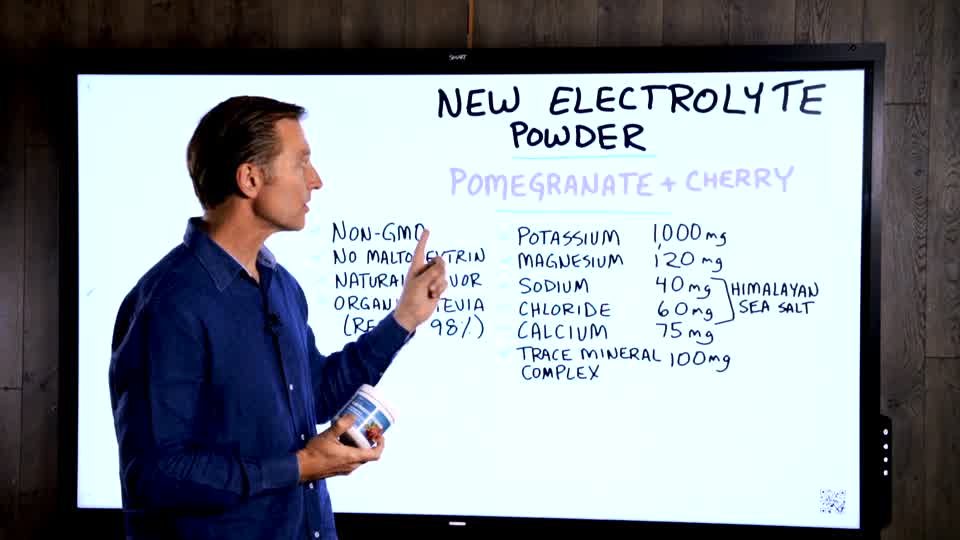 SMART
NEW ELECTROLYTE
POWDER
POMEGRANATE + CHERRY
NON-GMO
NO
NATURAL
(98%)
POTASSIUM 1,000 mg
MAGNESIUM 120 mg
SODIUM 40 mg
CHLORIDE 60 mg
CALCIUM 75 mg
TRACE MINERAL 100 mg
COMPLEX
HIMALAYAN
SEA SALT